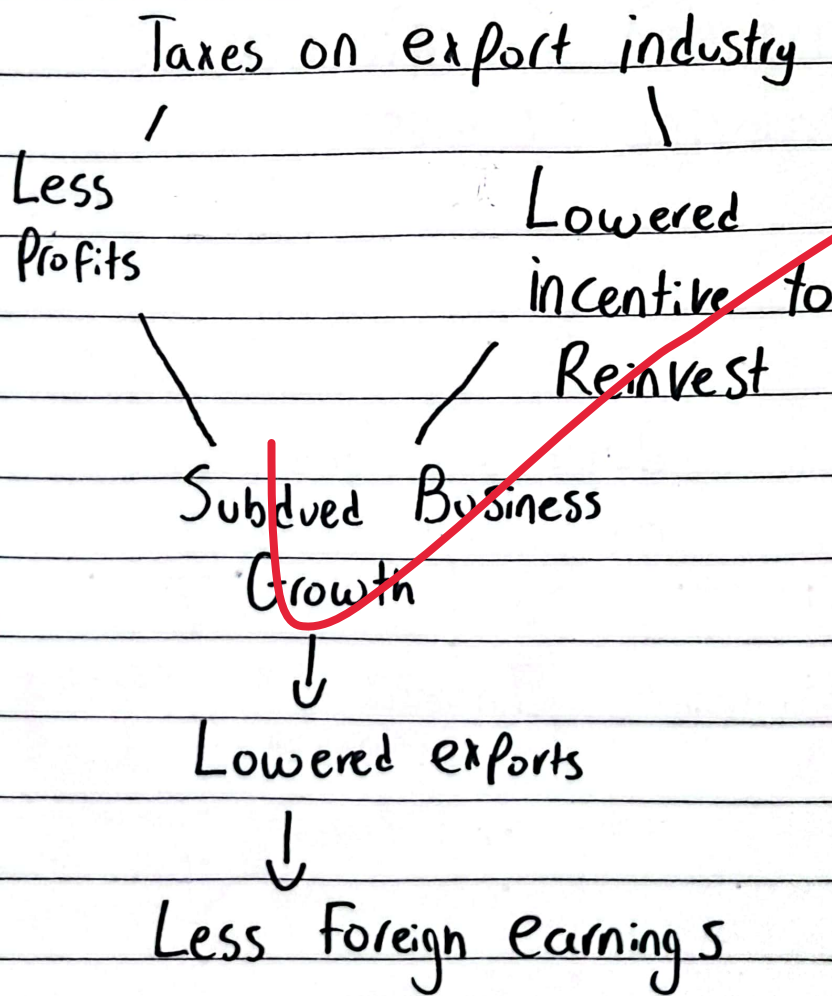 Taxes on export industry
Less
Profits
Lowered
incentive to
Reinvest
Subdued Business
Growth
Lowered exports
Less Foreign earnings